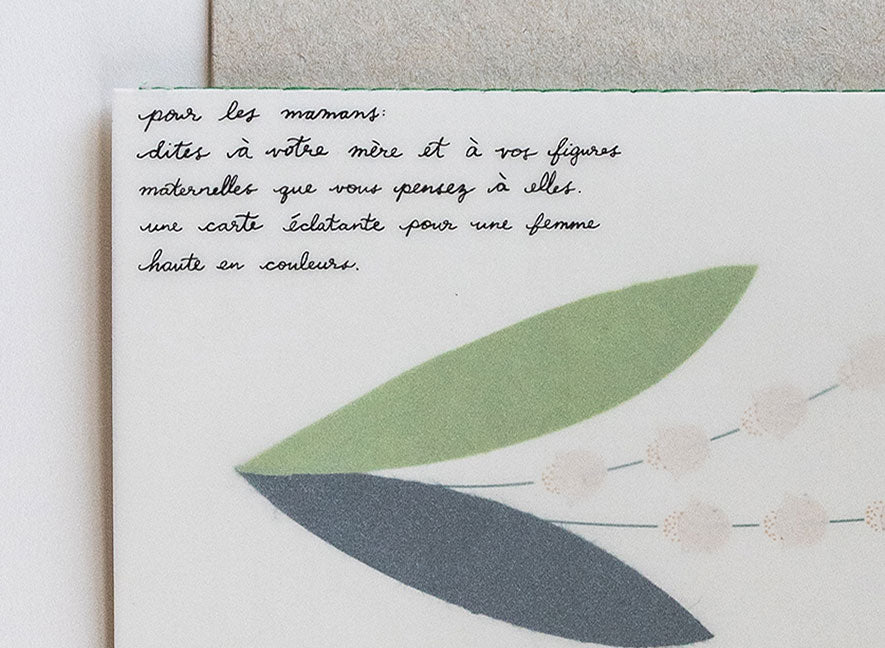 pour les mamans:
dites à votre mère et à vos figures
maternelles que vous pensez à elles.
une carte éclatante pour une femme
haute en couleurs.